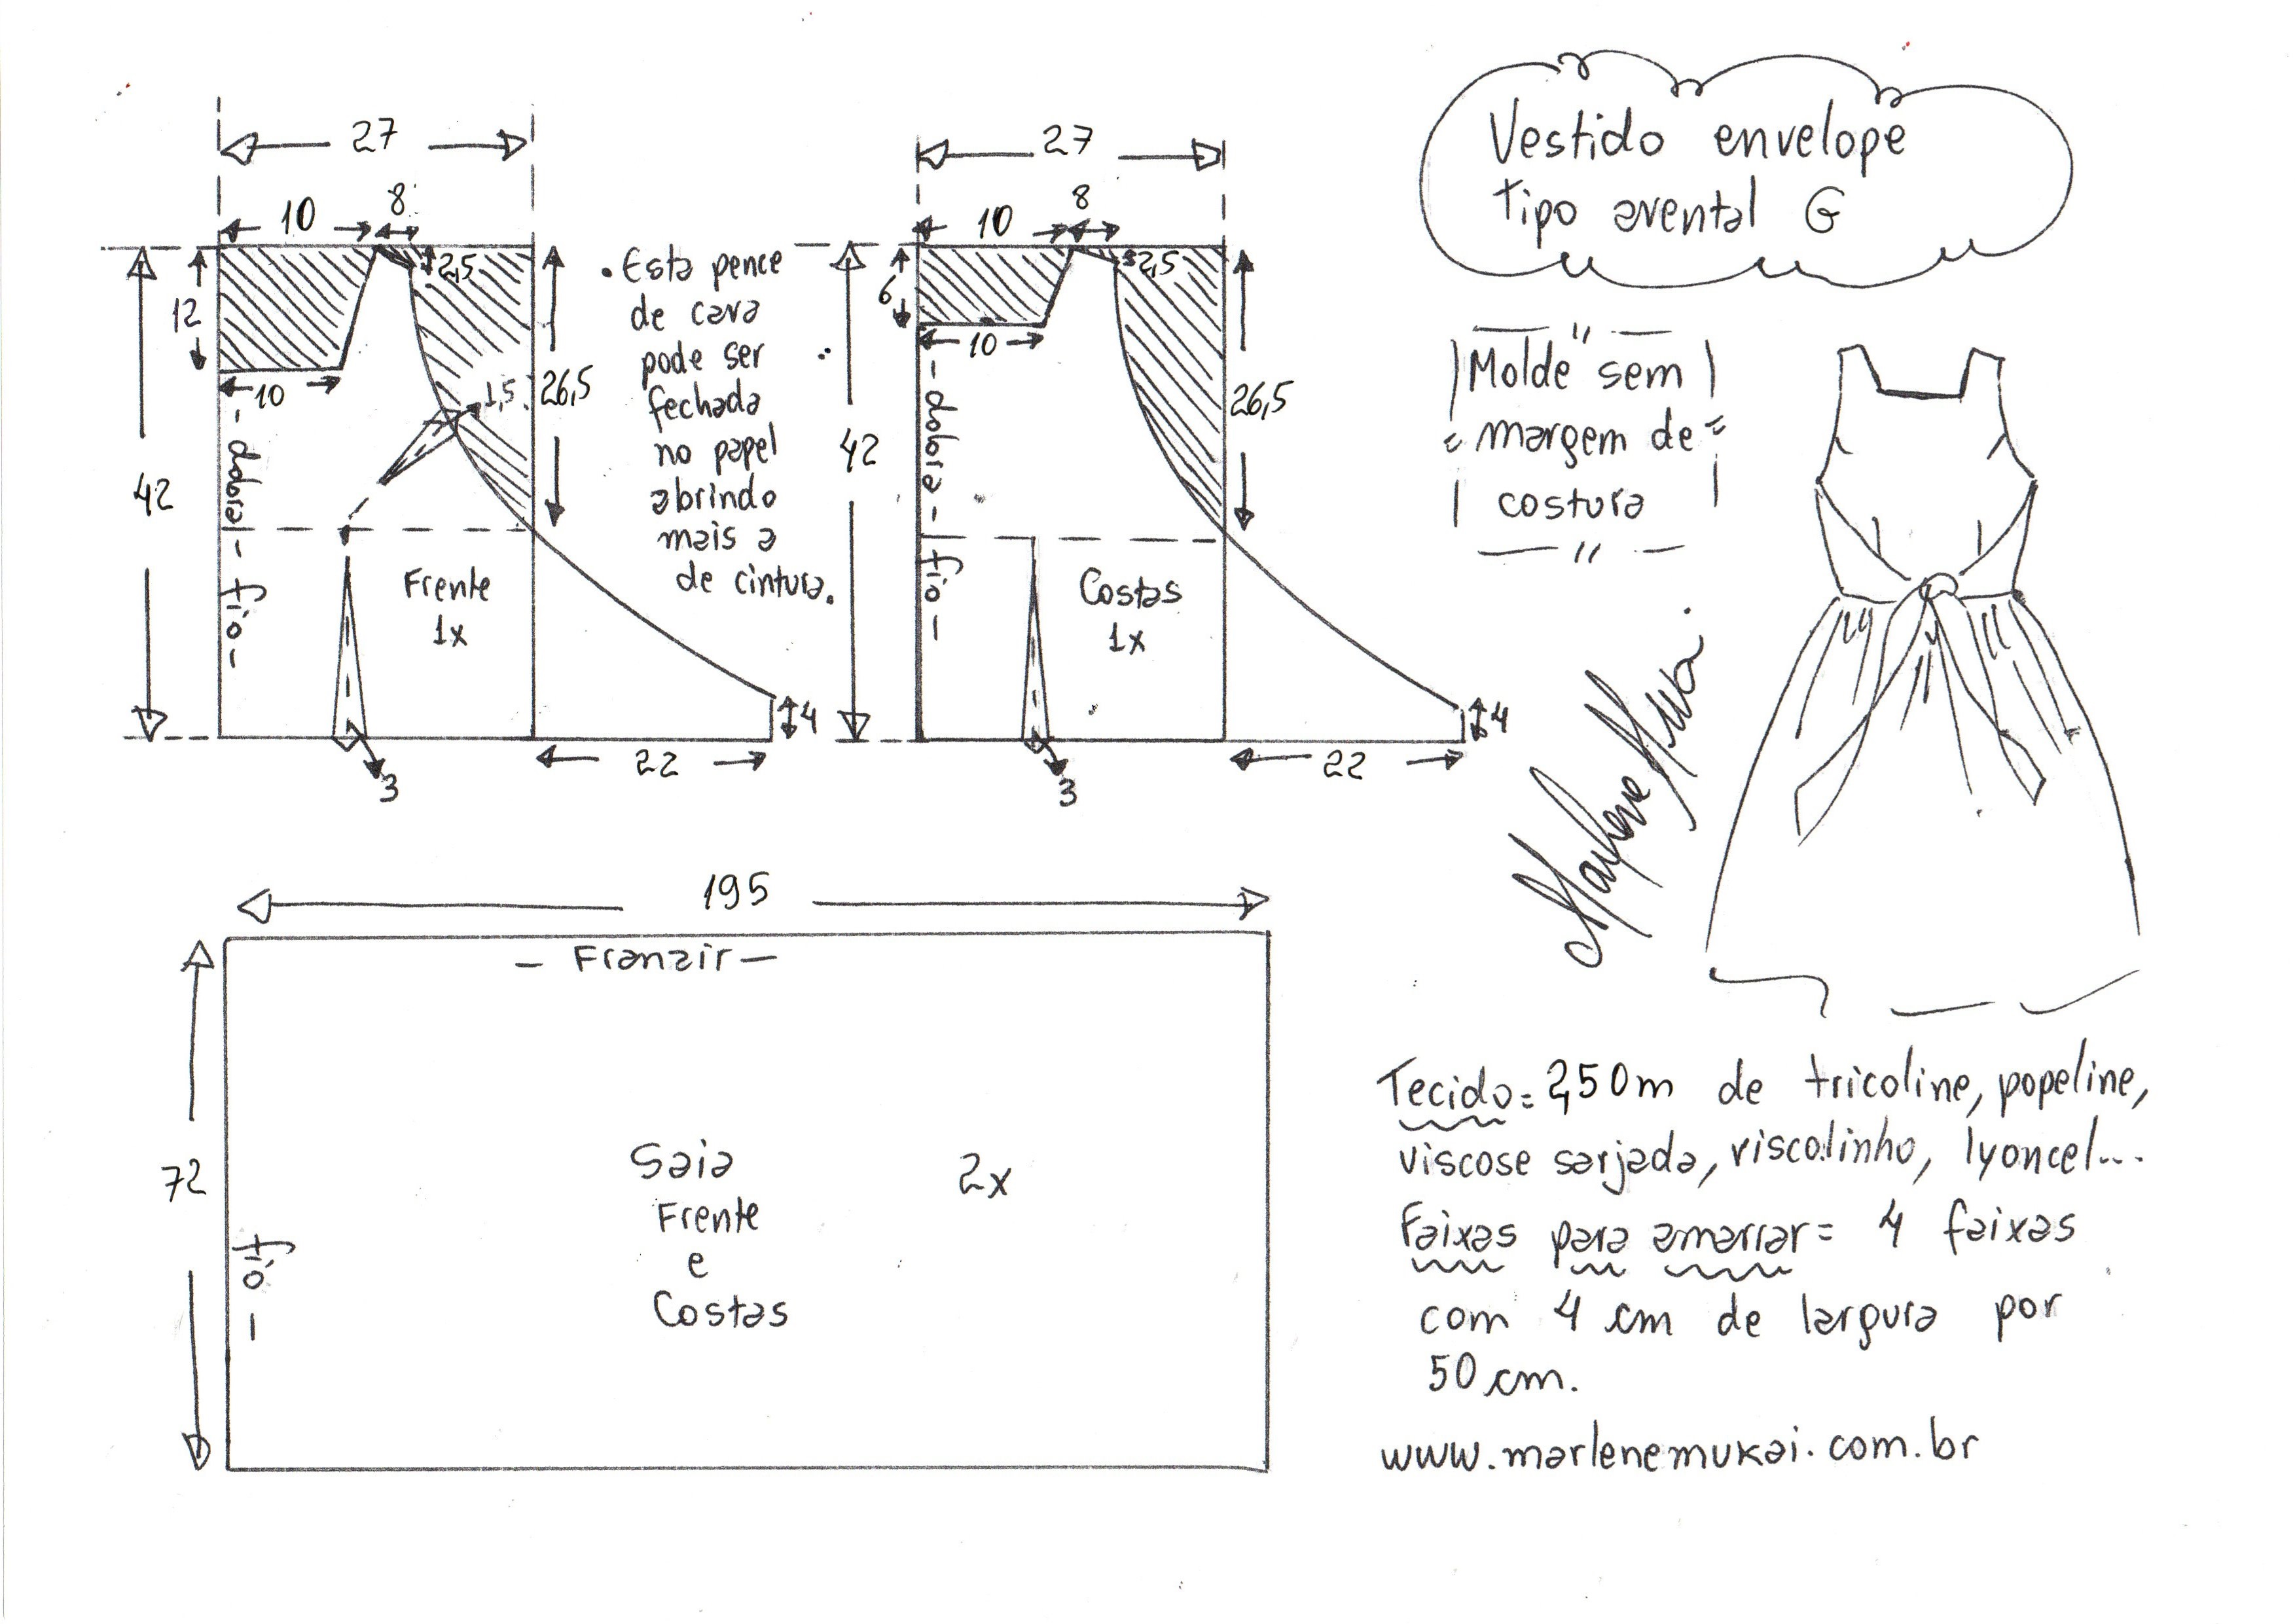 Vestido envelope
tipo avental G
Molde sem
margem de
costura
27
10
8
2,5
12
10
42
1,5
26,5
dobra - fio
Frente
1x
3
22
4
. Esta pence
de cava
pode ser
fechada
no papel
abrindo
mais a
de cintura.
27
10
8
2,5
6
10
42
26,5
dobra - fio
Costas
1x
3
22
4
Marlene Mukai
195
- Franzir -
72
fio
Saia
Frente
e
Costas
2x
Tecido = 2,50m de tricoline, popeline,
viscose sarjada, viscolinho, lyoncel...
Faixas para amarrar = 4 faixas
com 4 cm de largura por
50 cm.
www.marlenemukai.com.br